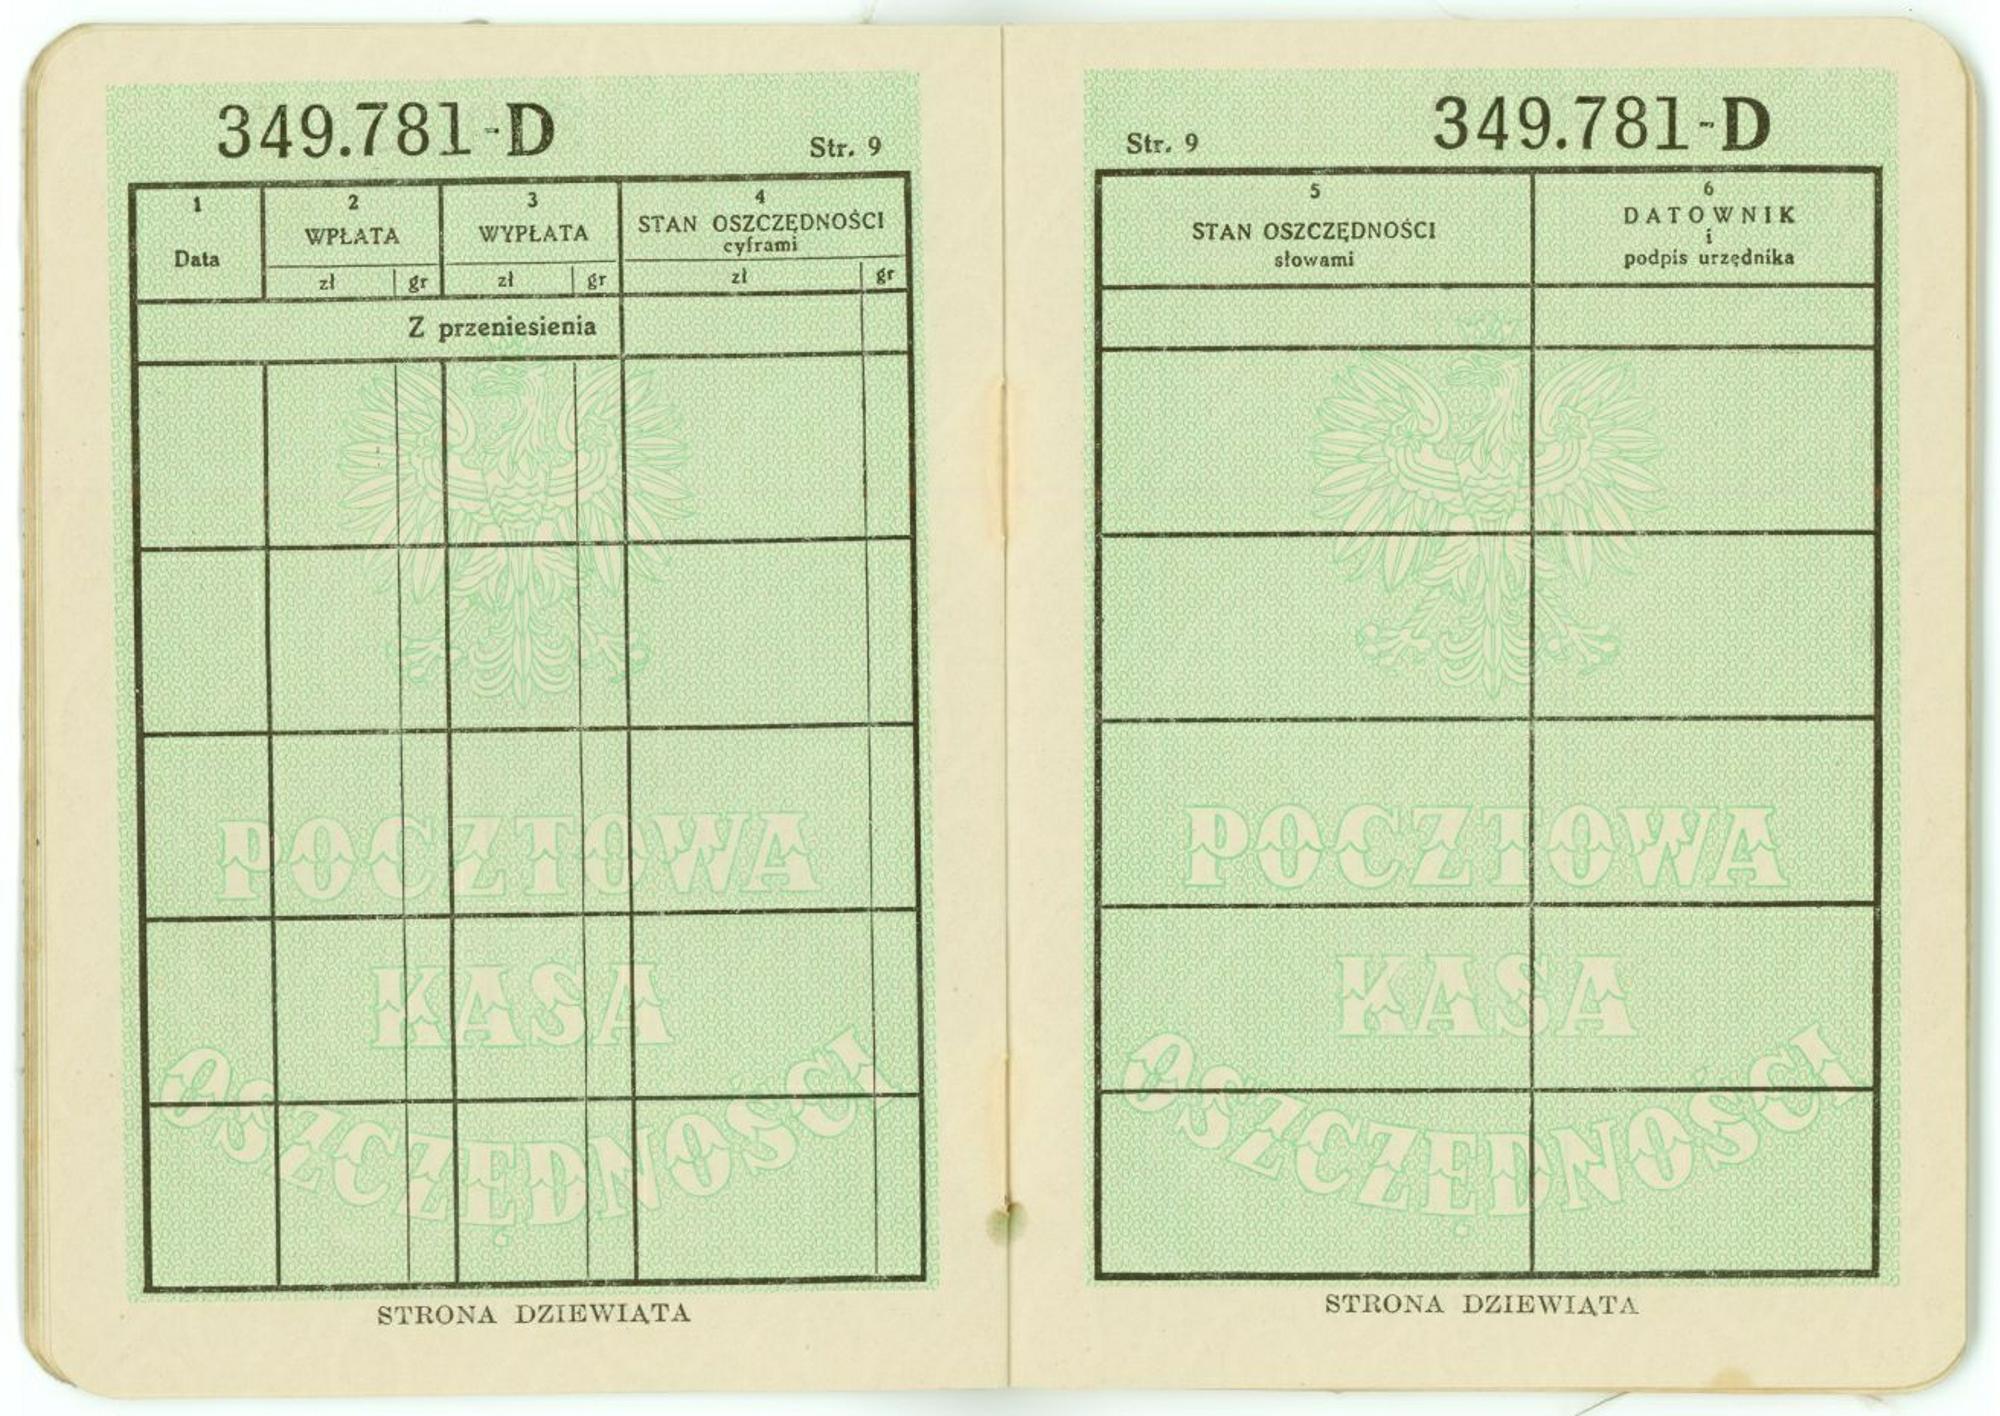 349.781-D
Str. 9
1
Data
2
WPŁATA
zł gr
3
WYPŁATA
zł gr
4
STAN OSZCZĘDNOŚCI
cyframi
zł gr
Z przeniesienia
POCZTOWA
KASA
OSZCZĘDNOŚCI
STRONA DZIEWIĄTA
Str. 9
349.781-D
5
STAN OSZCZĘDNOŚCI
słowami
6
DATOWNIK
i
podpis urzędnika
POCZTOWA
KASA
OSZCZĘDNOŚCI
STRONA DZIEWIĄTA